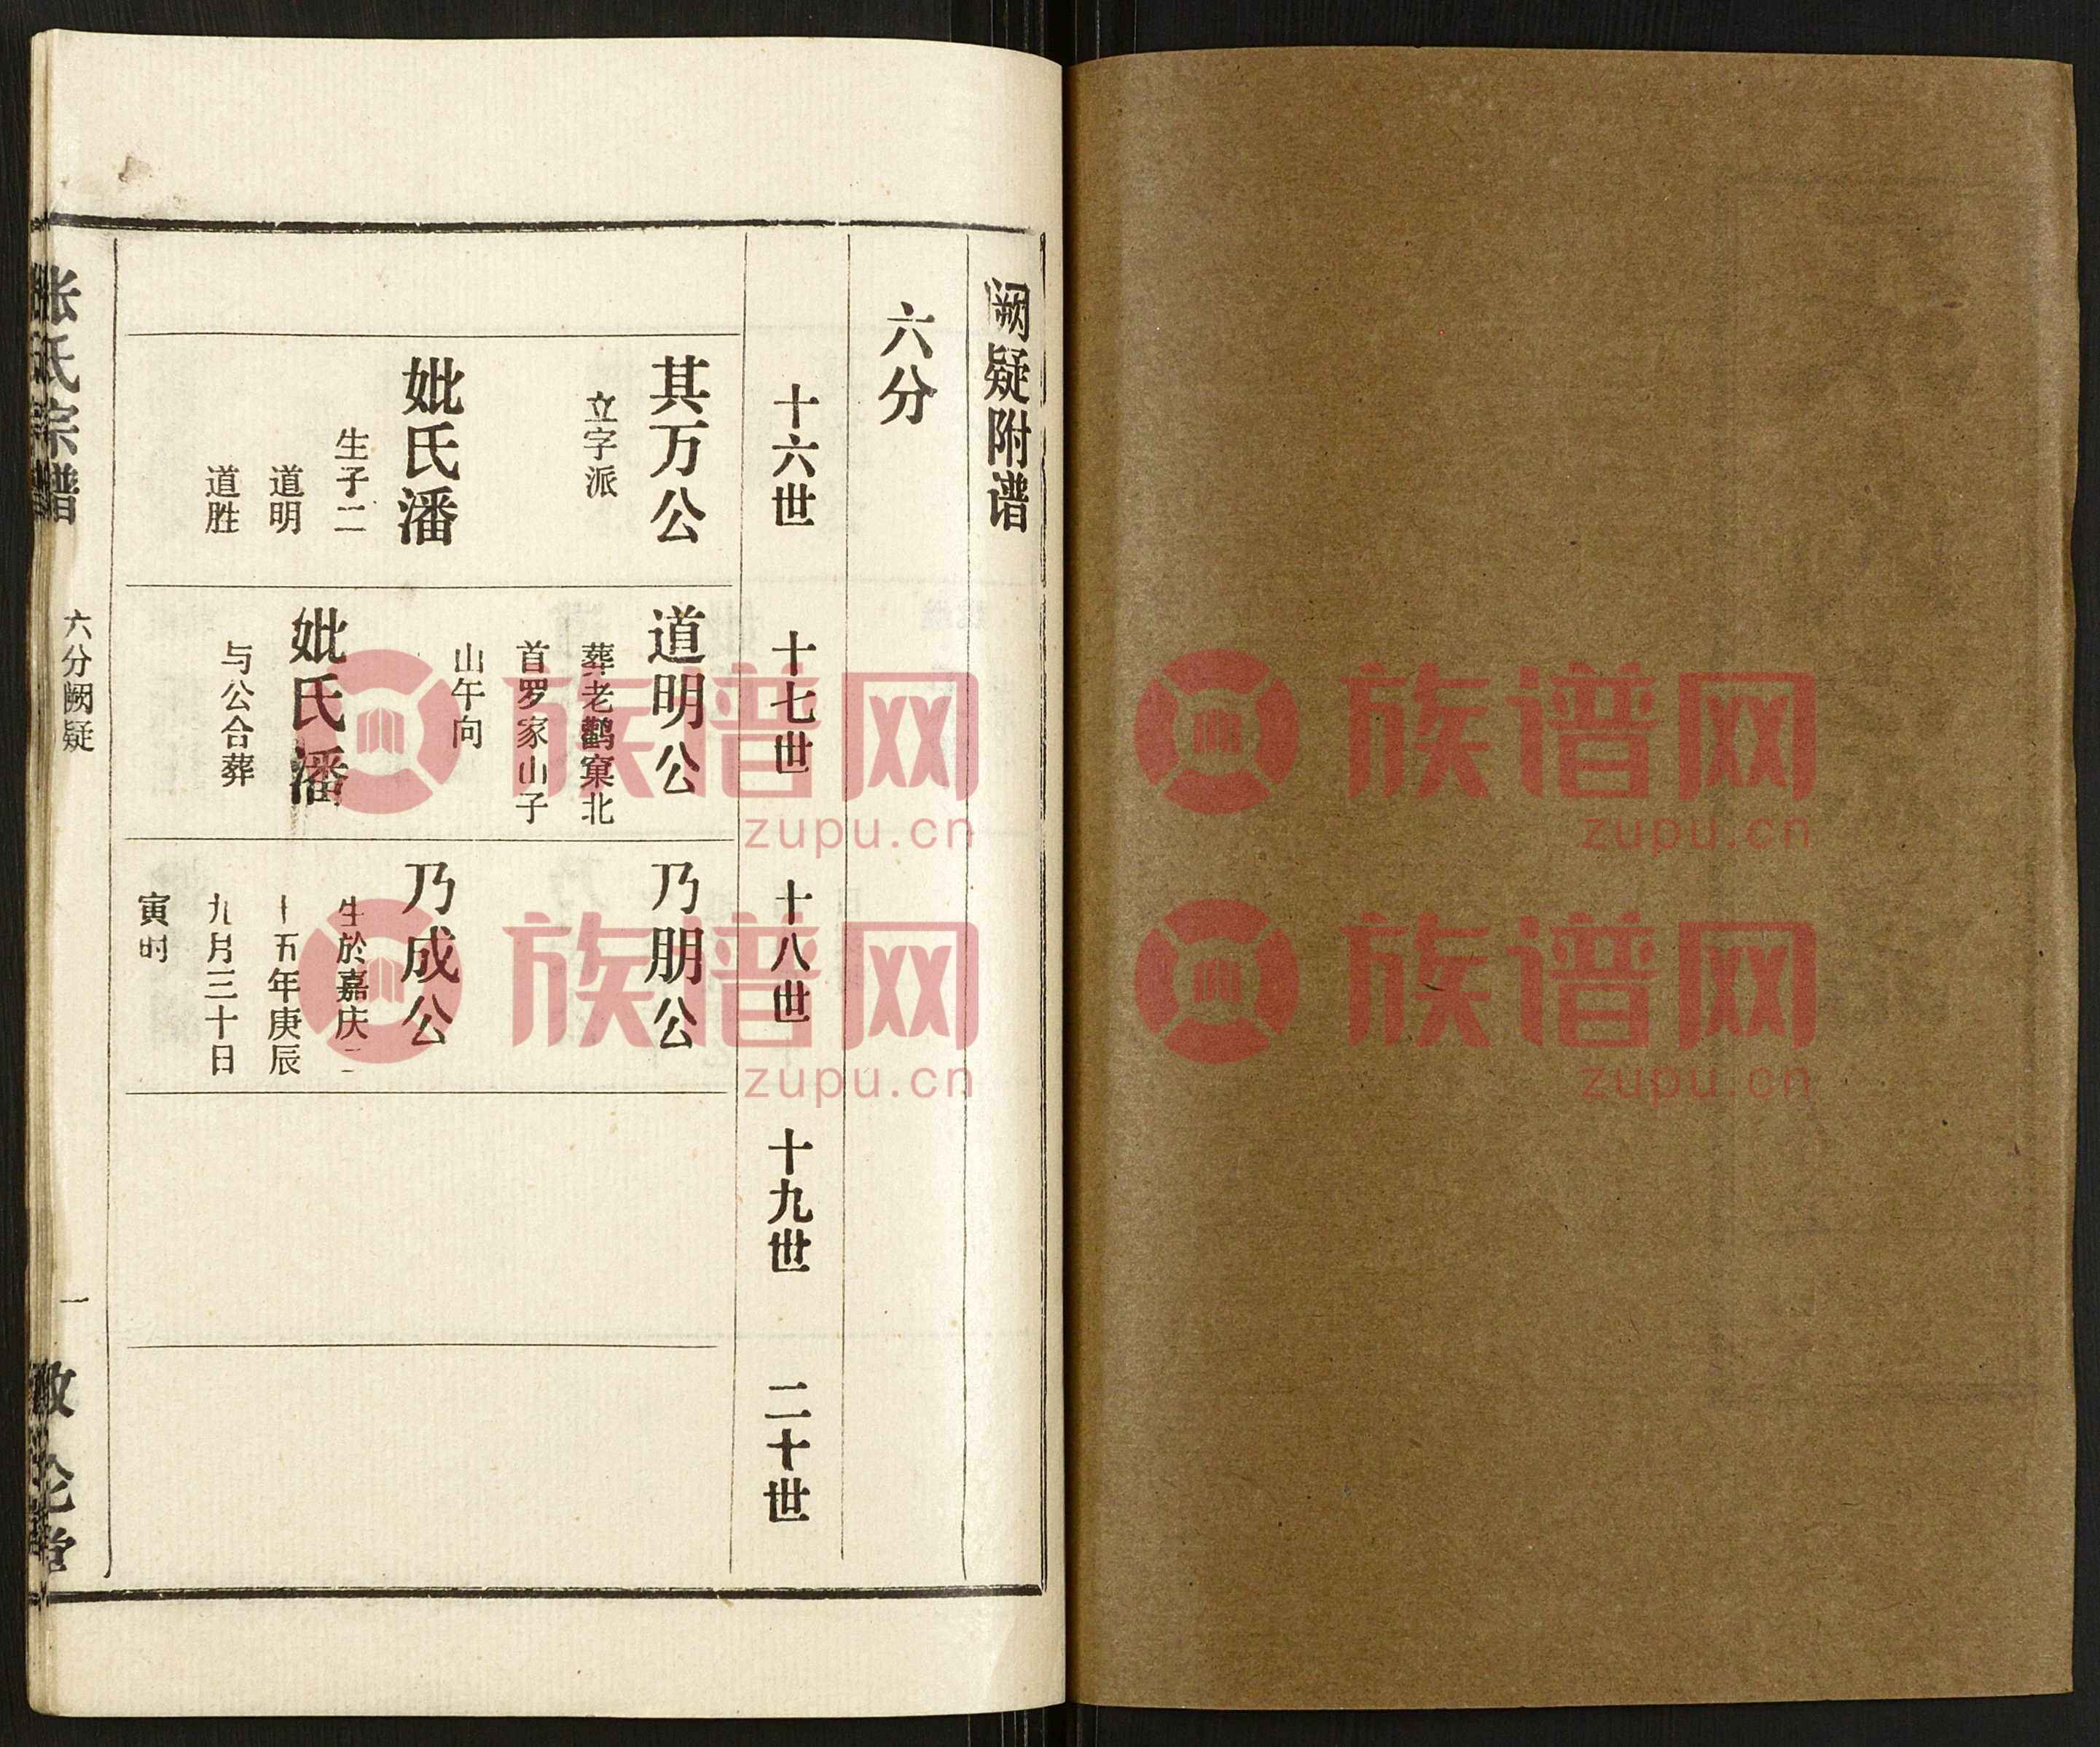 阙疑附谱
六分
十六世
十七世
十八世
十九世
二十世
其万公
立字派
妣氏潘
生子二
道明
道胜
道明公
葬老鹳窠北
首罗家山子
山午向
妣氏潘
与公合葬
乃朋公
乃成公
生於嘉庆二
十五年庚辰
九月三十日
寅时
张氏宗谱
六分阙疑
一
敦伦堂
族谱网
zupu.cn
族谱网
zupu.cn
族谱网
zupu.cn
族谱网
zupu.cn